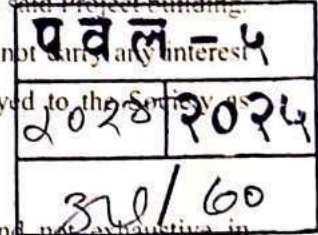 said Project building.
not carry any interest
पवल - ५
yed to the Society as
२०२५
/ 60
nd not exhaustive in